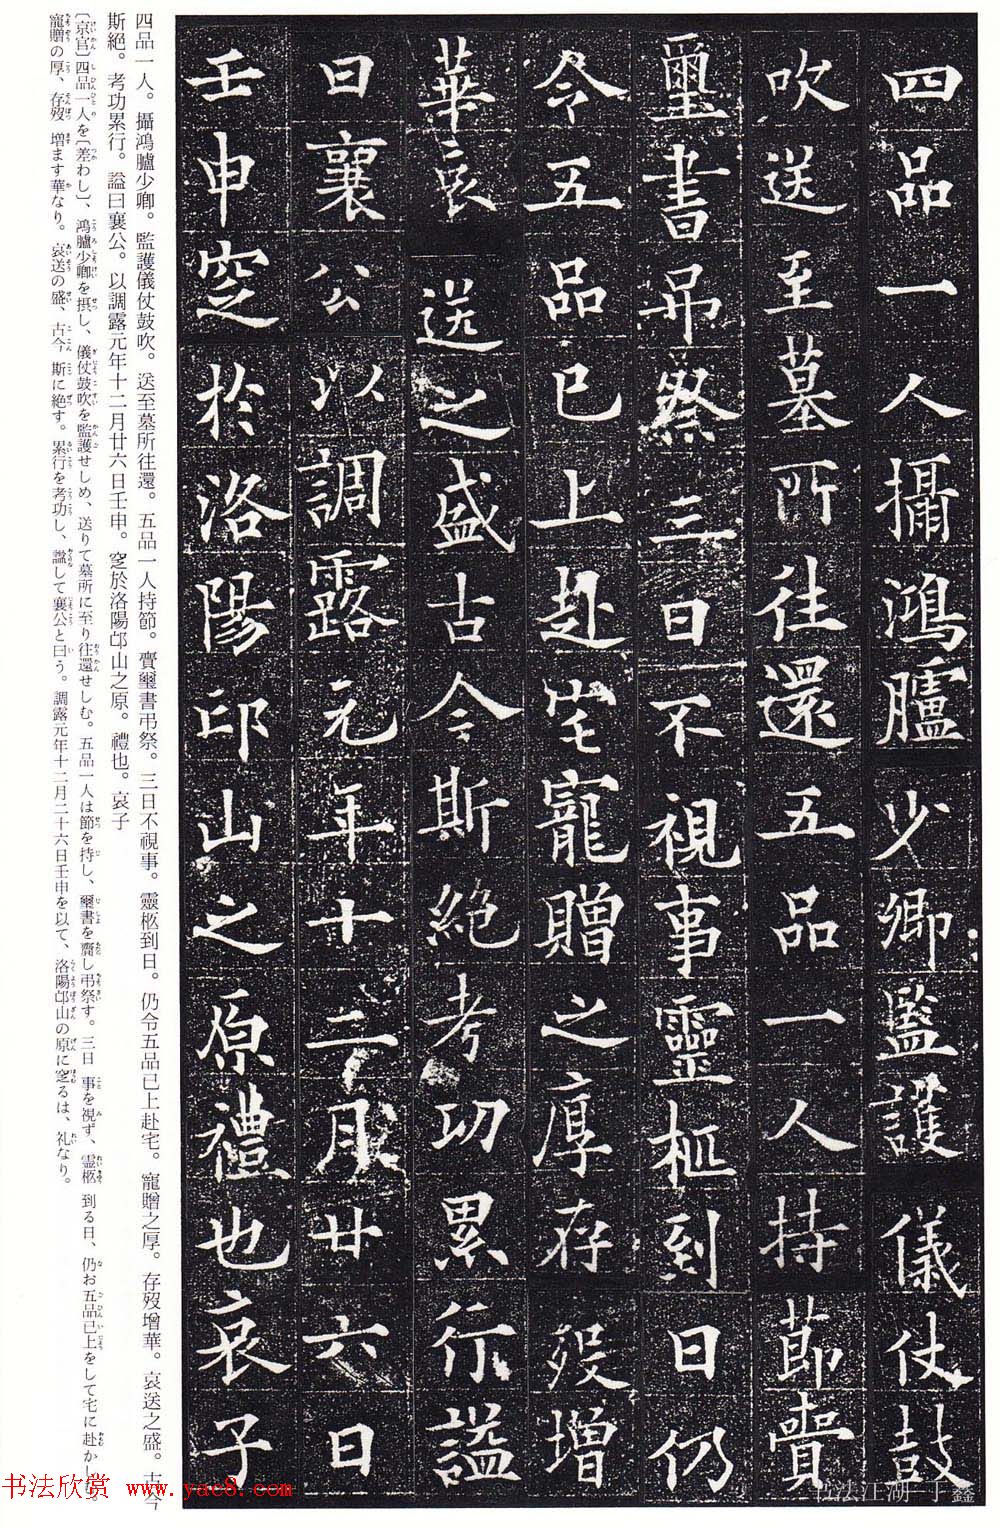 四品一人攝鴻臚少卿監護儀仗鼓
吹送至墓所往還五品一人持節賷
璽書弔祭三日不視事靈柩到日仍
令五品已上赴宅寵贈之厚存歿增
華哀送之盛古今斯絕考功累行謚
曰襄公以調露元年十二月廿六日
壬申窆於洛陽邙山之原禮也哀子
四品一人。攝鴻臚少卿。監護儀仗鼓吹。送至墓所往還。五品一人持節。賷璽書弔祭。三日不視事。靈柩到日。仍令五品已上赴宅。寵贈之厚。存歿增華。哀送之盛。古今
斯絕。考功累行。謚曰襄公。以調露元年十二月廿六日壬申。窆於洛陽邙山之原。禮也。哀子
〔京官〕四品一人を〔差わし〕、鴻臚少卿を摂し、儀仗鼓吹を監護せしめ、送りて墓所に至り往還せしむ。五品一人は節を持し、璽書を賷し弔祭す。三日 事を視ず、霊柩 到る日、仍お五品已上をして宅に赴かしむ。
寵贈の厚、存歿 増ます華なり。哀送の盛、古今 斯に絶す。累行を考功し、謚して襄公と曰う。調露元年十二月二十六日壬申を以て、洛陽邙山の原に窆るは、礼なり。
书法欣赏 www.yac8.com
书法江湖 丁鑫